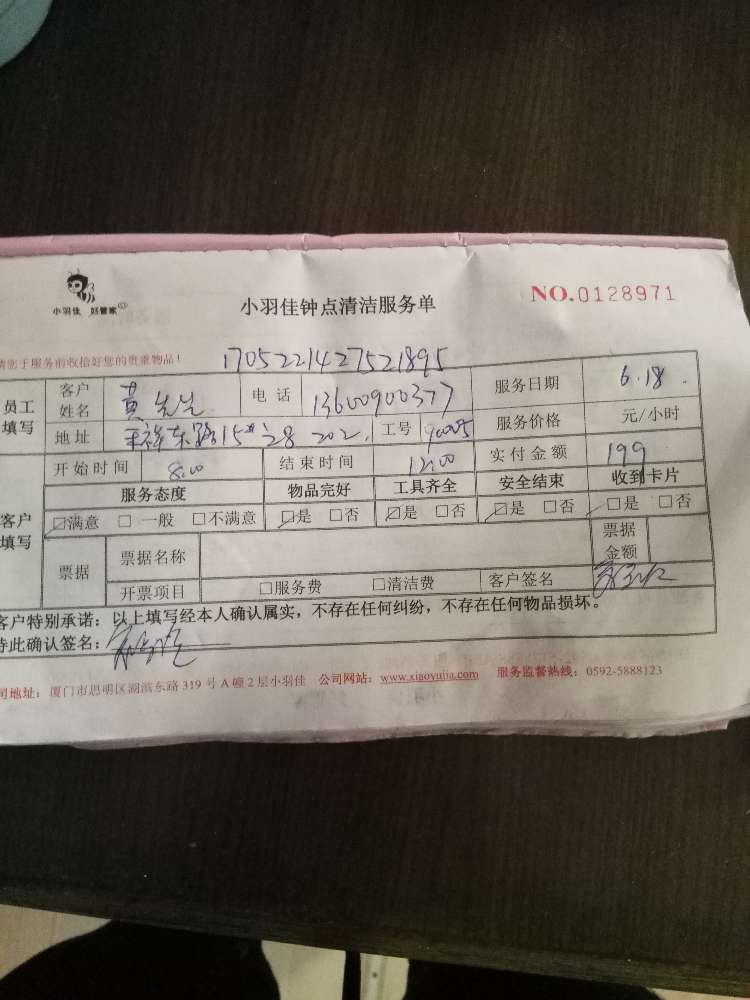 小羽佳 好管家
小羽佳钟点清洁服务单
NO.0128971
请您于服务前收拾好您的贵重物品!
1705221427521895
员工填写 客户姓名 黄先生 电话 13600900377 服务日期 6.18.
地址 东路15# 28 202 工号 90005 服务价格 元/小时
客户填写 开始时间 8:00 结束时间 12:00 实付金额 199
服务态度 物品完好 工具齐全 安全结束 收到卡片
☑满意 □一般 □不满意 ☑是 □否 ☑是 □否 ☑是 □否 ☑是 □否
票据 票据名称 票据金额
开票项目 □服务费 □清洁费 客户签名
客户特别承诺:以上填写经本人确认属实,不存在任何纠纷,不存在任何物品损坏。
特此确认签名:
司地址:厦门市思明区湖滨东路319号A幢2层小羽佳 公司网站:www.xiaoyujia.com 服务监督热线:0592-5888123